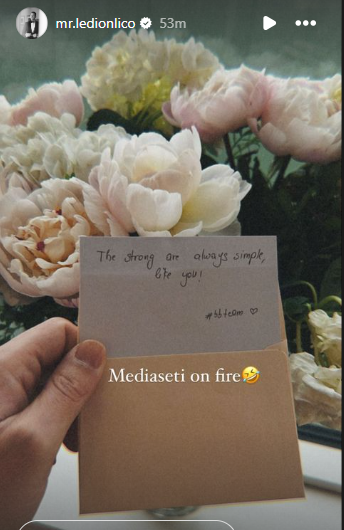 mr.ledionlico 53m
The strong are always simple,
like you!
#bbteam ♡
Mediaseti on fire🤣